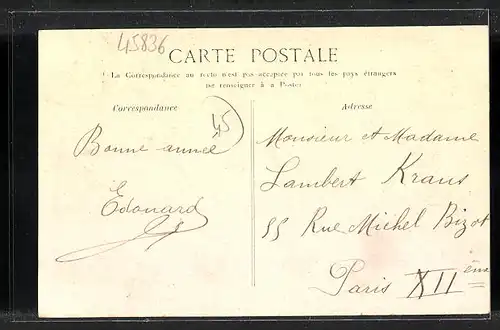 45836
CARTE POSTALE
La Correspondance au recto n'est pas acceptée par tous les pays étrangers
se renseigner à la Poste
Correspondance
Adresse
45
Bonne année
Edouard
Monsieur et Madame
Lambert Kraus
55 Rue Michel Bizot
Paris XII ème